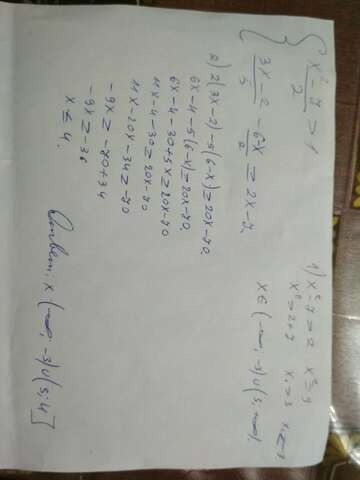 { x² - 7 / 2 > 1
3x - 2 / 5 - 6 - x / 2 ≥ 2x - 7.
1) x² - 7 > 2 x² > 9
x² > 2 + 7 x₁ > 3 x₂ < -3
x ∈ (-∞; -3) ∪ (3; +∞).
2) 2(3x - 2) - 5(6 - x) ≥ 20x - 70
6x - 4 - 5(6 - x) ≥ 20x - 70
6x - 4 - 30 + 5x ≥ 20x - 70
11x - 4 - 30 ≥ 20x - 70
11x - 20x - 34 ≥ -70
-9x ≥ -70 + 34
-9x ≥ -36
x ≤ 4.
Ответ: x (-∞; -3) ∪ (3; 4]